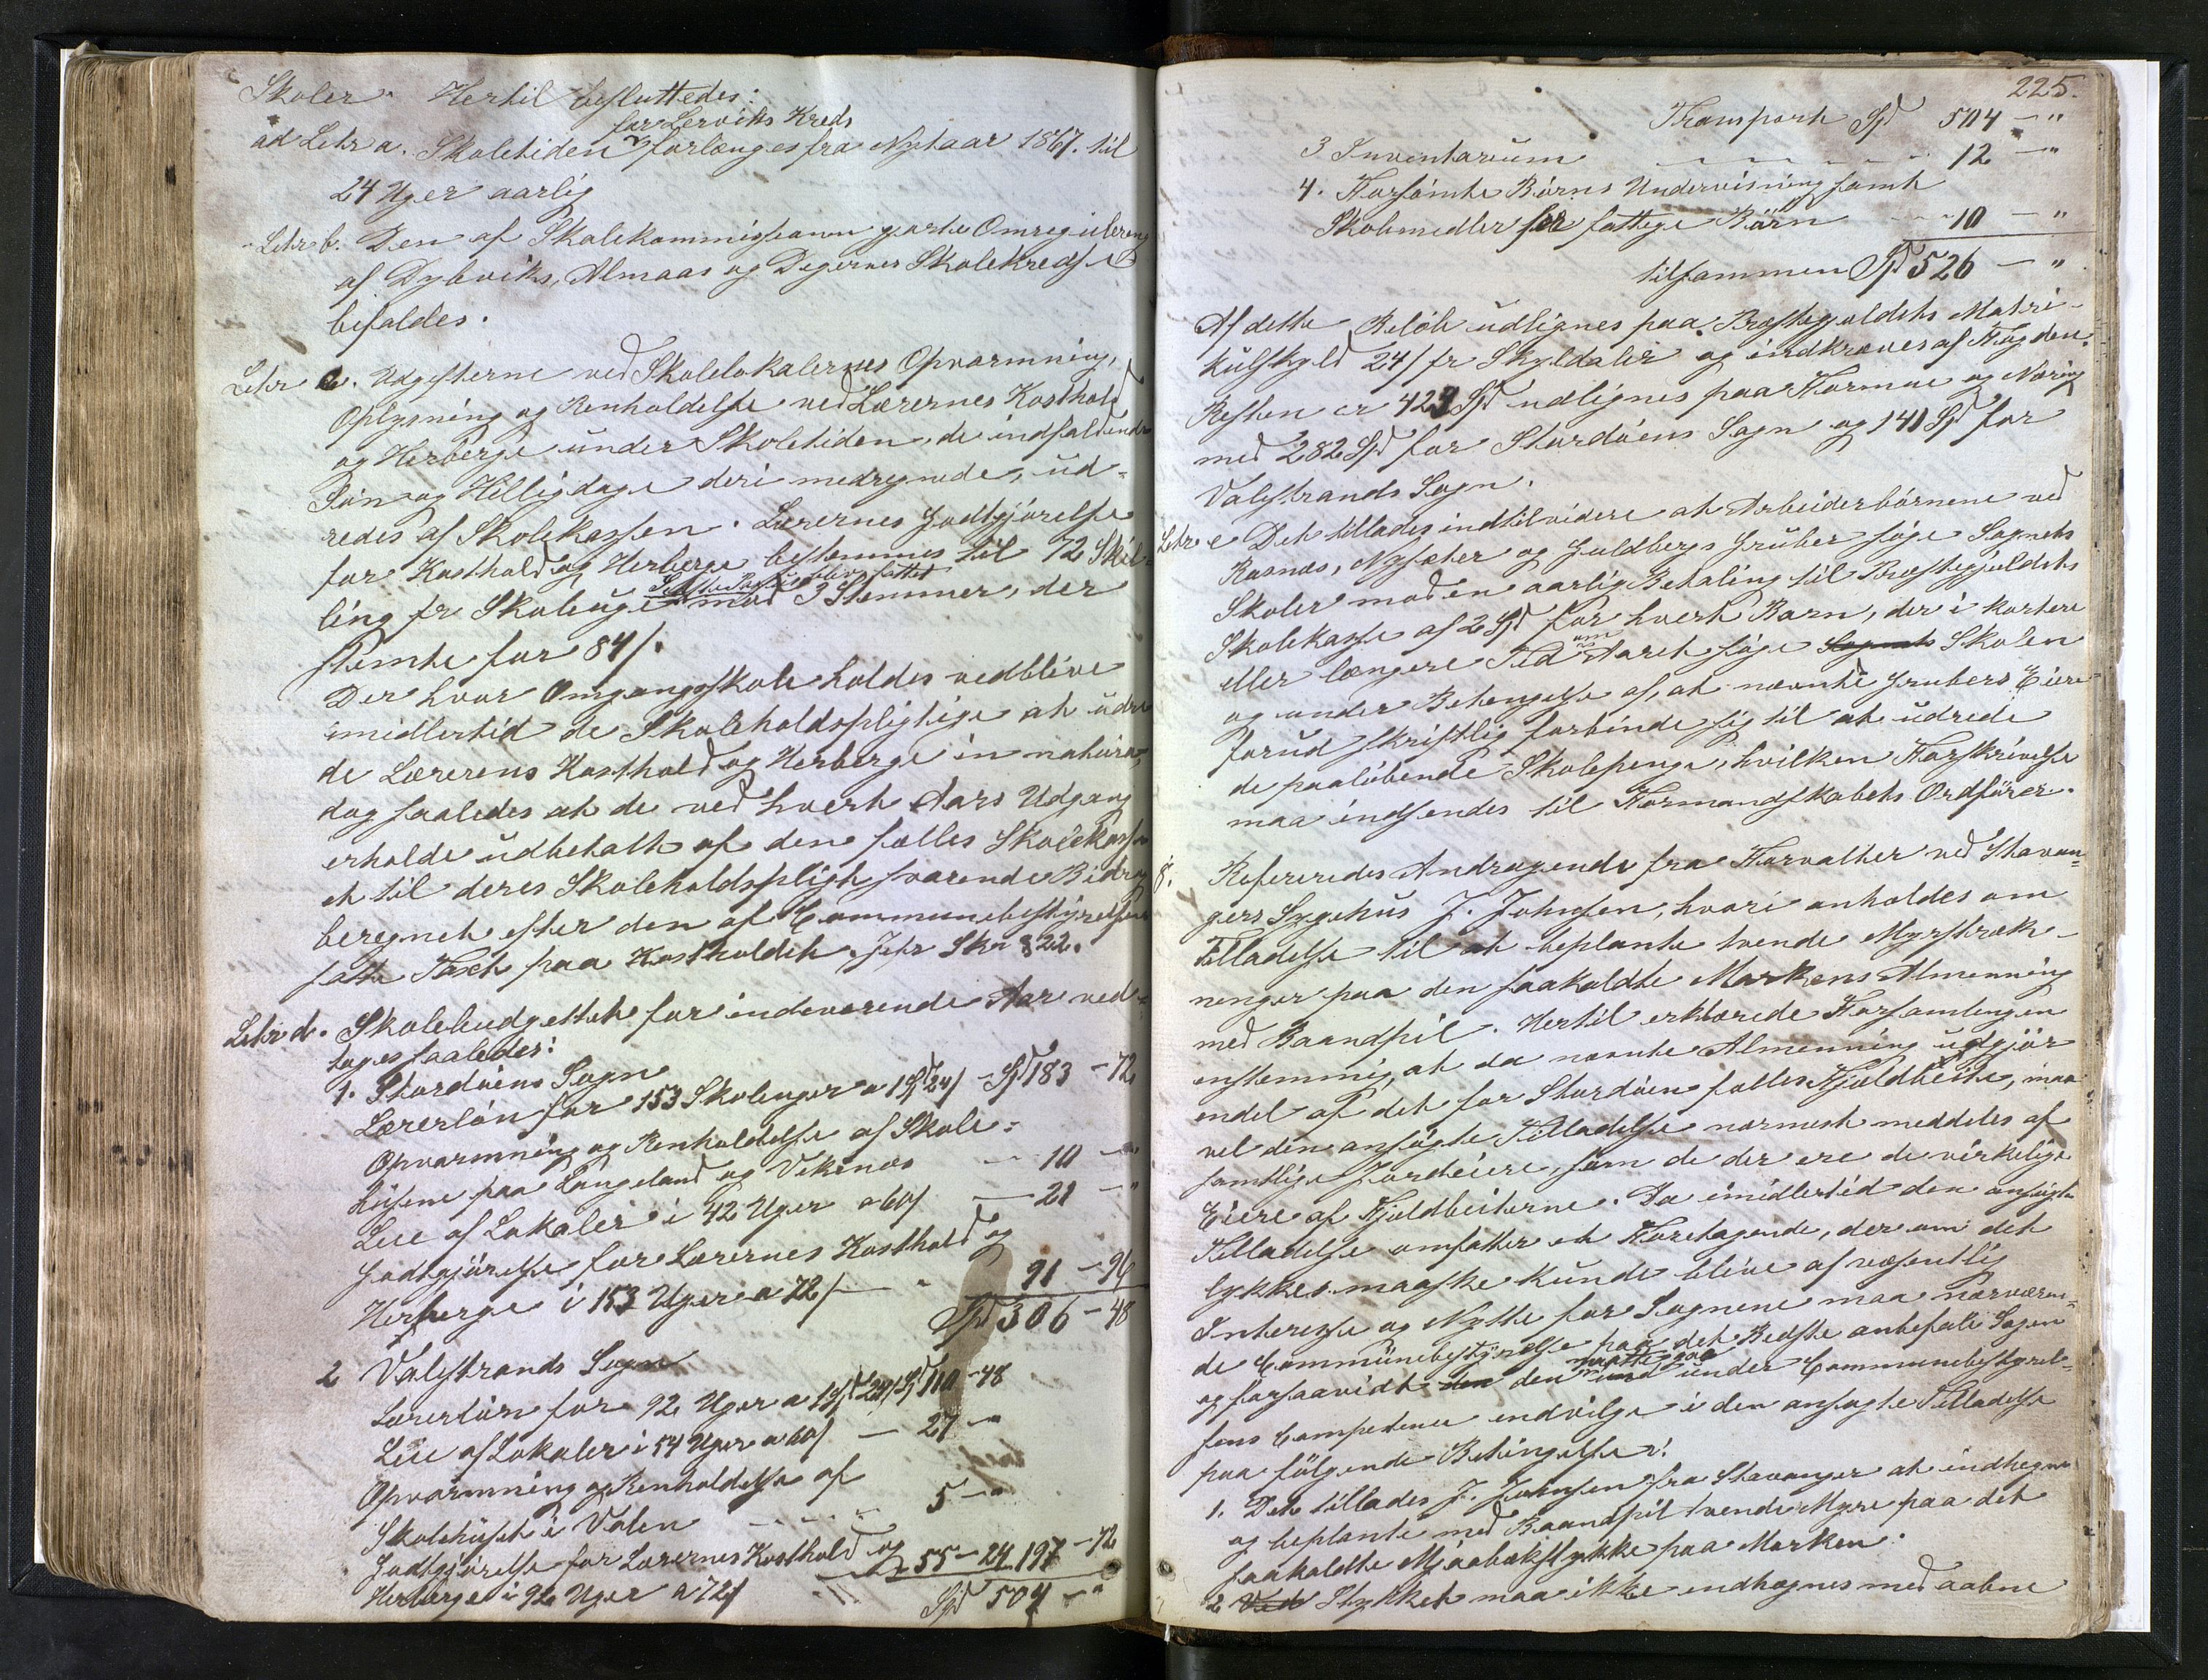 Skoler. Hertil besluttedes:
for Lerviks Kreds
ad Letr a. Skoletiden forlænges fra Nytaar 1867. til
24 Uger aarlig
Letr b. Den af Skolekommissionen gjorte Omregulering
af Dybviks, Almaas og Degernes Skolekredse
bifaldes.
Letr c. Udgifterne ved Skolelokalernes Opvarmning,
Oplysning og Renholdelse ved Lærernes Kosthold
og Herberge under Skoletiden, de indfaldende
Søn og Helligdage deri medregnede, ud-
redes af Skolekassen. Lærernes Godtgjörelse
for Kosthold og Herberge bestemmes til 72 Skil-
ling pr Skoleuge mod 3 Stemmer, der
stemte for 84/.
Der hvor Omgangsskole holdes vedblive
imidlertid de Skoleholdspligtige at udre
de Lærerens Kosthold og Herberge in natura,
dog saaledes at de ved hvert Aars Udgang
erholde udbetalt af den fælles Skolekasse
et til deres Skoleholdspligt svarende Bidrag
beregnet efter den af Communebestyrelsen
satte Taxt paa Kostholdet. Jefr Skn § 22.
Letr d. Skolebudgettet for indeværende Aar ved-
toges saaledes:
1. Stordöens Sogn
Lærerlön for 153 Skoleuger a 1 Spd 24/ - Spd 183 - 72
Opvarmning og Renholdelse af Skole-
husene paa Langeland og Vikenes - 10 - "
Leie af Lokaler i 42 Uger a 60/ - 21 - "
Godtgjörelse for Lærernes Kosthold og
Herberge i 153 Uger a 72/ - " 91 - 96
Spd 306 - 48
2 Valestrands Sogn
Lærerlön for 92 Uger a 1 Spd 24/ Spd 110 - 48
Leie af Lokaler i 54 Uger a 60/ - 27 - "
Opvarmning og Renholdelse af
Skolehuset i Valen 5 - "
Godtgjörelse for Lærernes Kosthold og
Herberge i 92 Uger a 72/ 55 - 24 197 - 72
Spd 504 - "
225.
Transport Spd 504 - "
3 Inventarium 12 - "
4. Forsömte Börns Undervisning samt
Skolemidler for fattige Börn 10 - "
tilsammen Spd 526 - "
Af dette Belöb udlignes paa Præstegjeldets Matri-
kulskyld 24/ pr Skylddaler og indkræves af Fogden.
Resten er 423 Spd udlignes paa Formue og Næring
med 282 Spd for Stordöens Sogn og 141 Spd for
Valestrands Sogn.
Letr e Det tillades indtilvidere at Arbeiderbörnene ved
Rosnæs, Nysæter og Guldbergs Gruber söge Sognets
Skoler mod en aarlig Betaling til Præstegjeldets
Skolekasse af 2 Spd for hvert Barn, der i kortere
eller længere Tid om Aaret söge Sognets Skolen
og under Betingelse af, at nævnte Grubers Eiere
forud skriftlig forbinde sig til at udrede
de paalöbende Skolepenge, hvilken Forskrivelse
maa indsendes til Formandskabets Ordförer.
8. Refereredes Andragende fra Forvalter ved Stavan-
gers Sygehus J. Johnsen, hvori anholdes om
Tilladelse til at beplante tvende Myrstræk-
ninger paa den saakaldte Markens Almenning
med Baandpil. Hertil erklærede Forsamlingen
enstemmig, at da nævnte Almenning udgjör
endel af det for Stordöen fælles Fjeldbeite, maa
vel den ansögte Tilladelse nærmest meddeles af
samtlige Jordeiere, som de der ere de virkelige
Eiere af Fjeldbeiterne. Da imidlertid den ansögte
Tilladelse omfatter et Foretagende, der om det
lykkes maaske kunde blive af væsentlig
Interesse og Nytte for Sognene maa nærværen-
de Communebestyrelse paa det Bedste anbefale Sagen
og forsaavidt den den maatte under Communebestyrel-
sens Competence indvilge i den ansøgte Tilladelse
paa fölgende Betingelser:
1. Det tillades J. Johnsen fra Stavanger at indhegne
og beplante med Baandpil tvende Myre paa det
saakaldte Mjaabækstykke paa Marken.
2 Ved Stykket maa ikke indhegnes med aabne